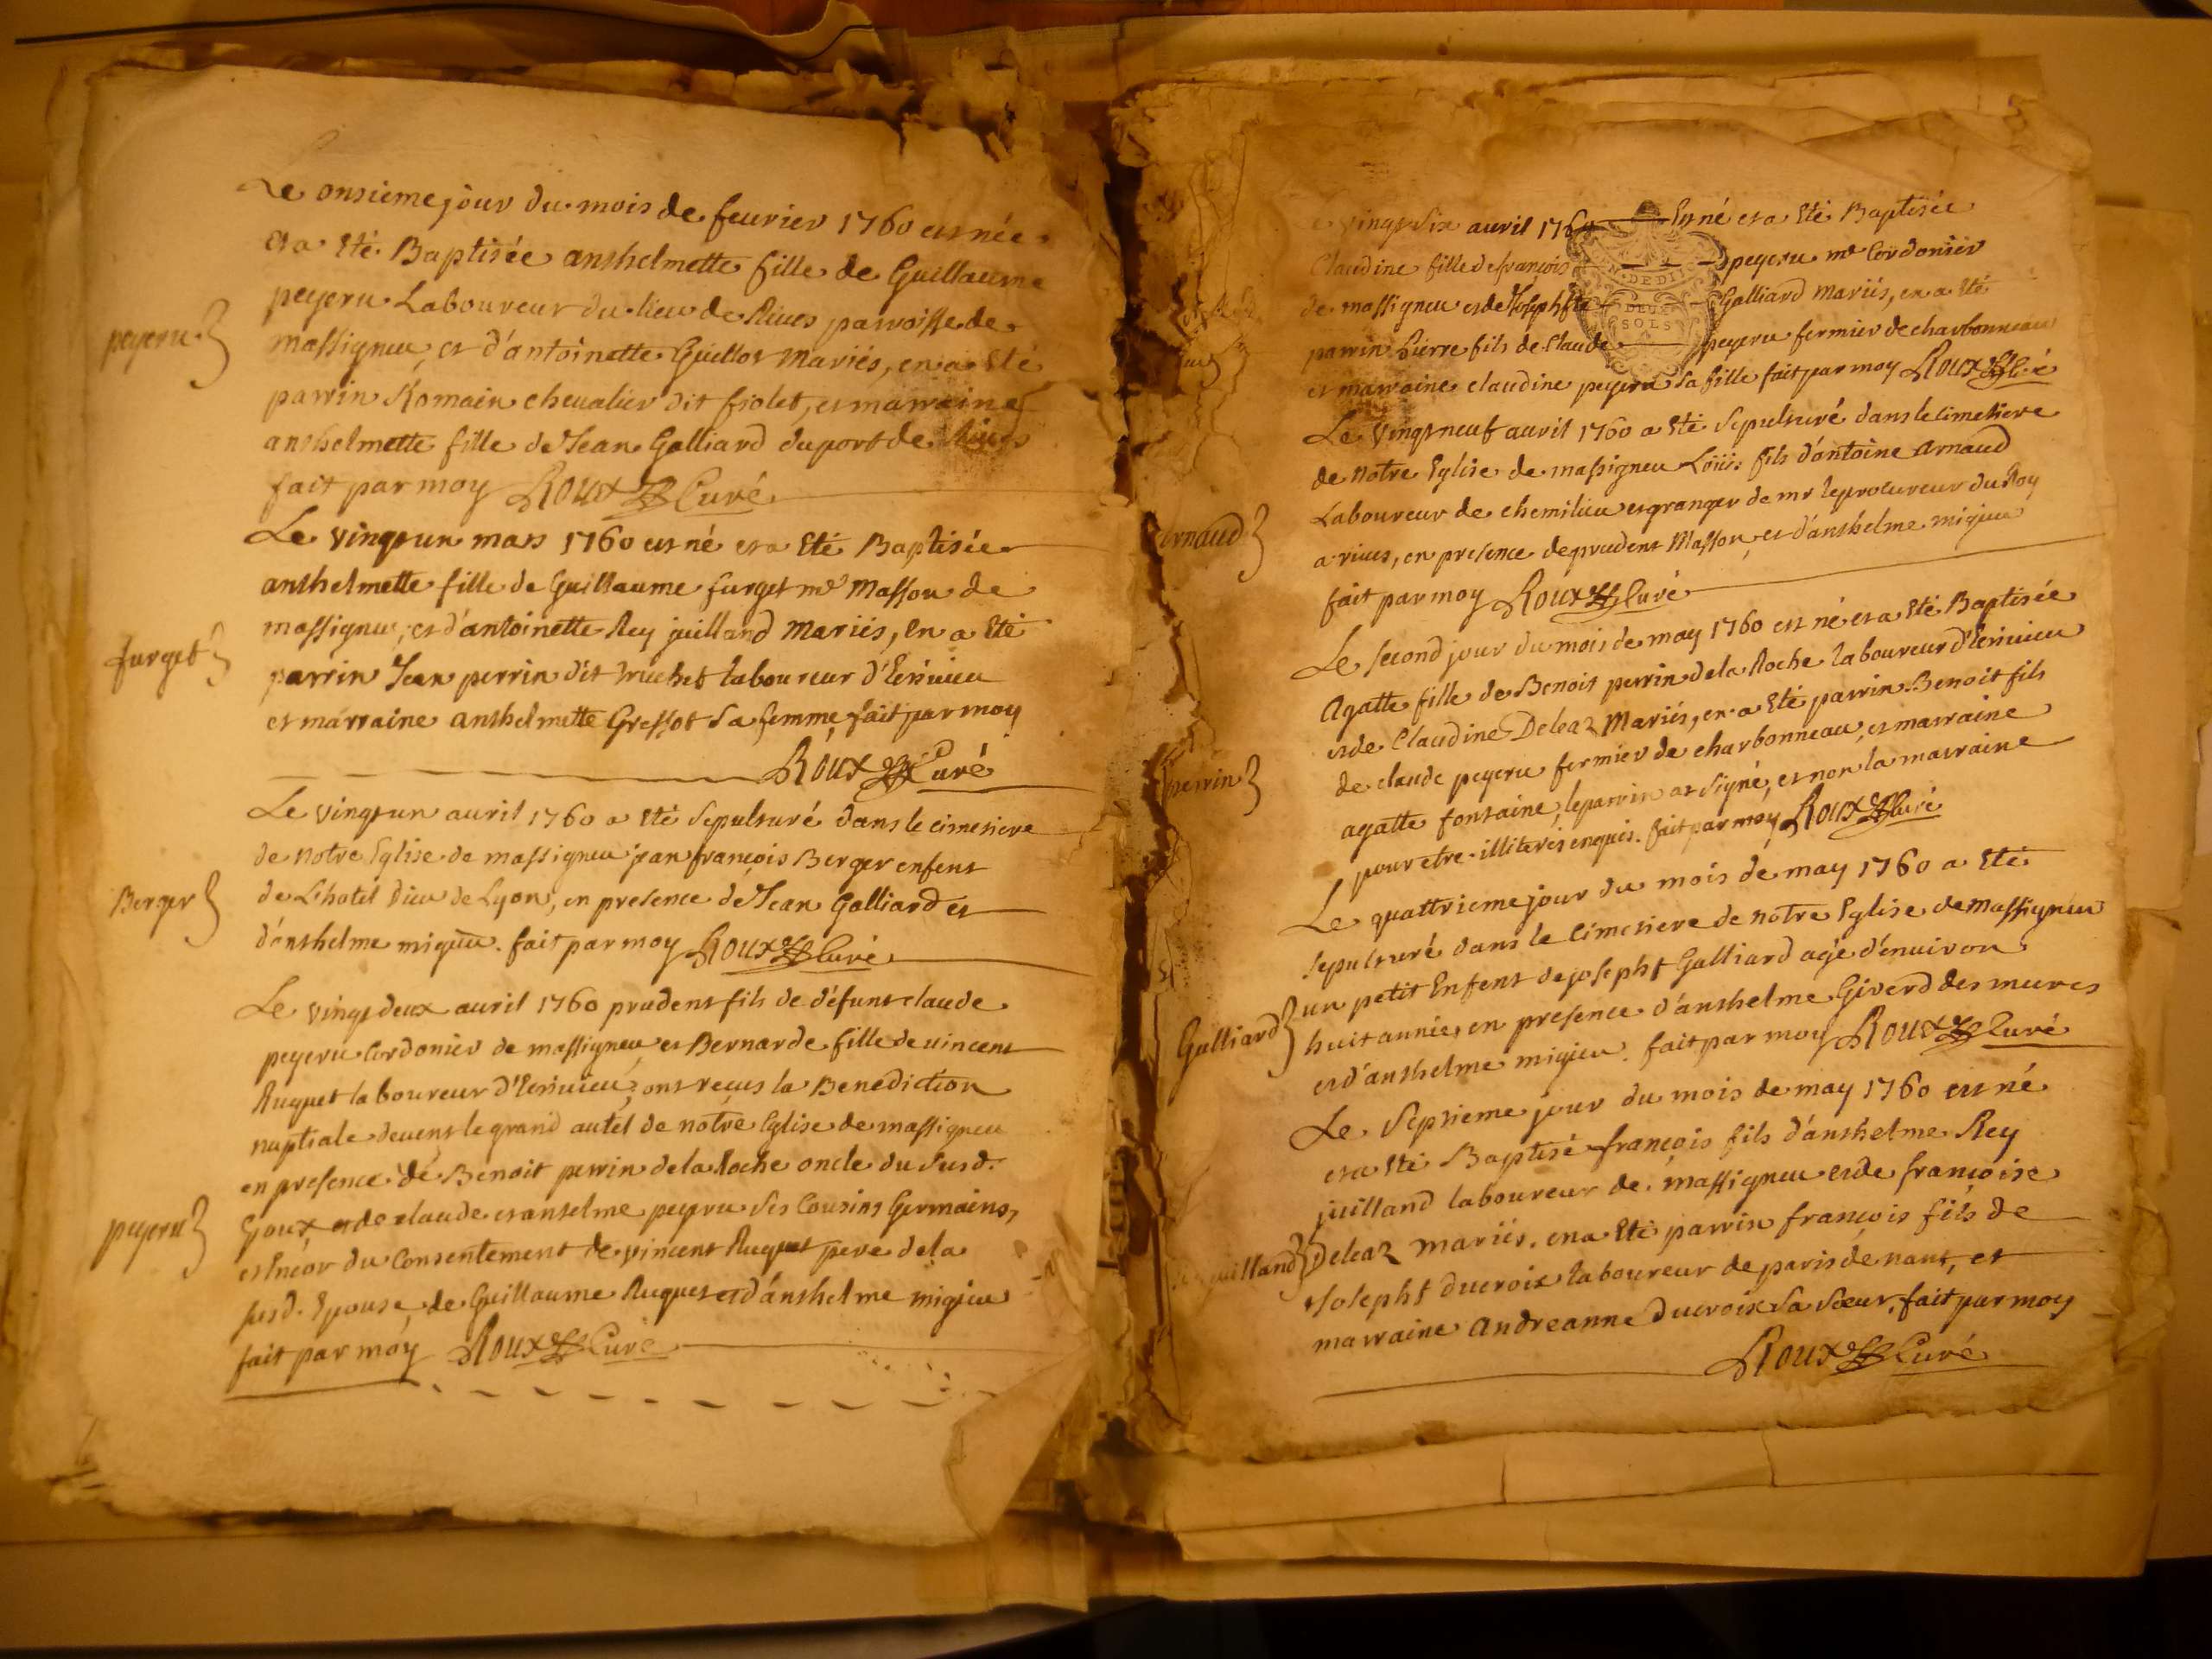 Le onsieme jour du mois de feurier 1760 est née
et a eté Baptisée anthelmette fille de Guillaume
peyeru Laboureur du lieu de Riues parroisse de
peyeru
massigneu, et d'antoinette Guillot mariés, en a eté
parrin Romain cheualier dit fiolet, et marraine
anthelmette fille de Jean Galliard du port de Riues
fait par moy Roux Curé
Le vingt un mars 1760 est né et a eté Baptisée
anthelmette fille de Guillaume furget me Masson de
massigneu, et d'antoinette Rey juilland mariés, en a eté
furget
parrin Jean perrin dit truchet laboureur d'Ecriuieu
et marraine anthelmette Gressot sa femme fait par moy
Roux Curé
Le vingt un auril 1760 a eté sepulturé dans le cimetiere
de notre Eglise de massigneu jean françois Berger enfent
Berger
de L'hotel Dieu de Lyon, en presence de Jean Galliard et
d'anthelme migieu. fait par moy Roux Curé
Le vingt deux auril 1760 prudent fils de défunt claude
peyeru Cordonier de massigneu et Bernarde fille de uincent
Ruquet laboureur d'Ecriuieu, ont reçus la Benediction
nuptiale deuent le grand autel de notre Eglise de massigneu
en presence de Benoit perrin de la Roche oncle du susd.
peyeru
Epoux, et de claude et antelme peyeru ses Cousins Germains,
et Encor du Consentement de vincent Ruquet pere de la
susd. Epouse, de Guillaume Ruquet et d'anthelme migieu
fait par moy Roux Curé
vingt six auril 1760 Est né et a eté Baptisée
Claudine fille de françois peyeru me Cordonier
de massigneu et de Josephte Galliard mariés, en a eté
DEUX
SOLS
parrin Pierre fils de Claude peyeru fermier de charbonneau
et marraine claudine peyeru sa fille fait par moy Roux Curé
Le vingt neuf auril 1760 a eté sepulturé dans le cimetiere
de notre Eglise de massigneu Loüis fils d'antoine Arnaud
Laboureur de chemilieu et granger de mr le procureur du Roy
arnaud
a riues, en presence de prudent Masson, et d'anthelme migieu
fait par moy Roux Curé
Le second jour du mois de may 1760 est né et a eté Baptisée
Agatte fille de Benoit perrin de la Roche laboureur d'Ecriuieu
et de Claudine Deleaz Mariés, en a eté parrin Benoit fils
perrin
de claude peyeru fermier de charbonneau, et marraine
agatte fontaine, le parrin at signé, et non la marraine
pour etre illiterés enquis. fait par moy Roux Curé
Le quattrieme jour du mois de may 1760 a eté
sepulturé dans le Cimetiere de notre Eglise de massigneu
un petit Enfent de josepht Galliard agé d'enuiron
Galliard
huit années en presence d'anthelme Giverd des mures
et d'anthelme migieu. fait par moy Roux Curé
Le septieme jour du mois de may 1760 est né
et a eté Baptisé françois fils d'anthelme Rey
juilland laboureur de massigneu et de françoise
juilland
Deleaz mariés. en a eté parrin françois fils de
Josepht ducroix laboureur de paris de nant, et
marraine Andreanne Ducroix sa sœur, fait par moy
Roux Curé